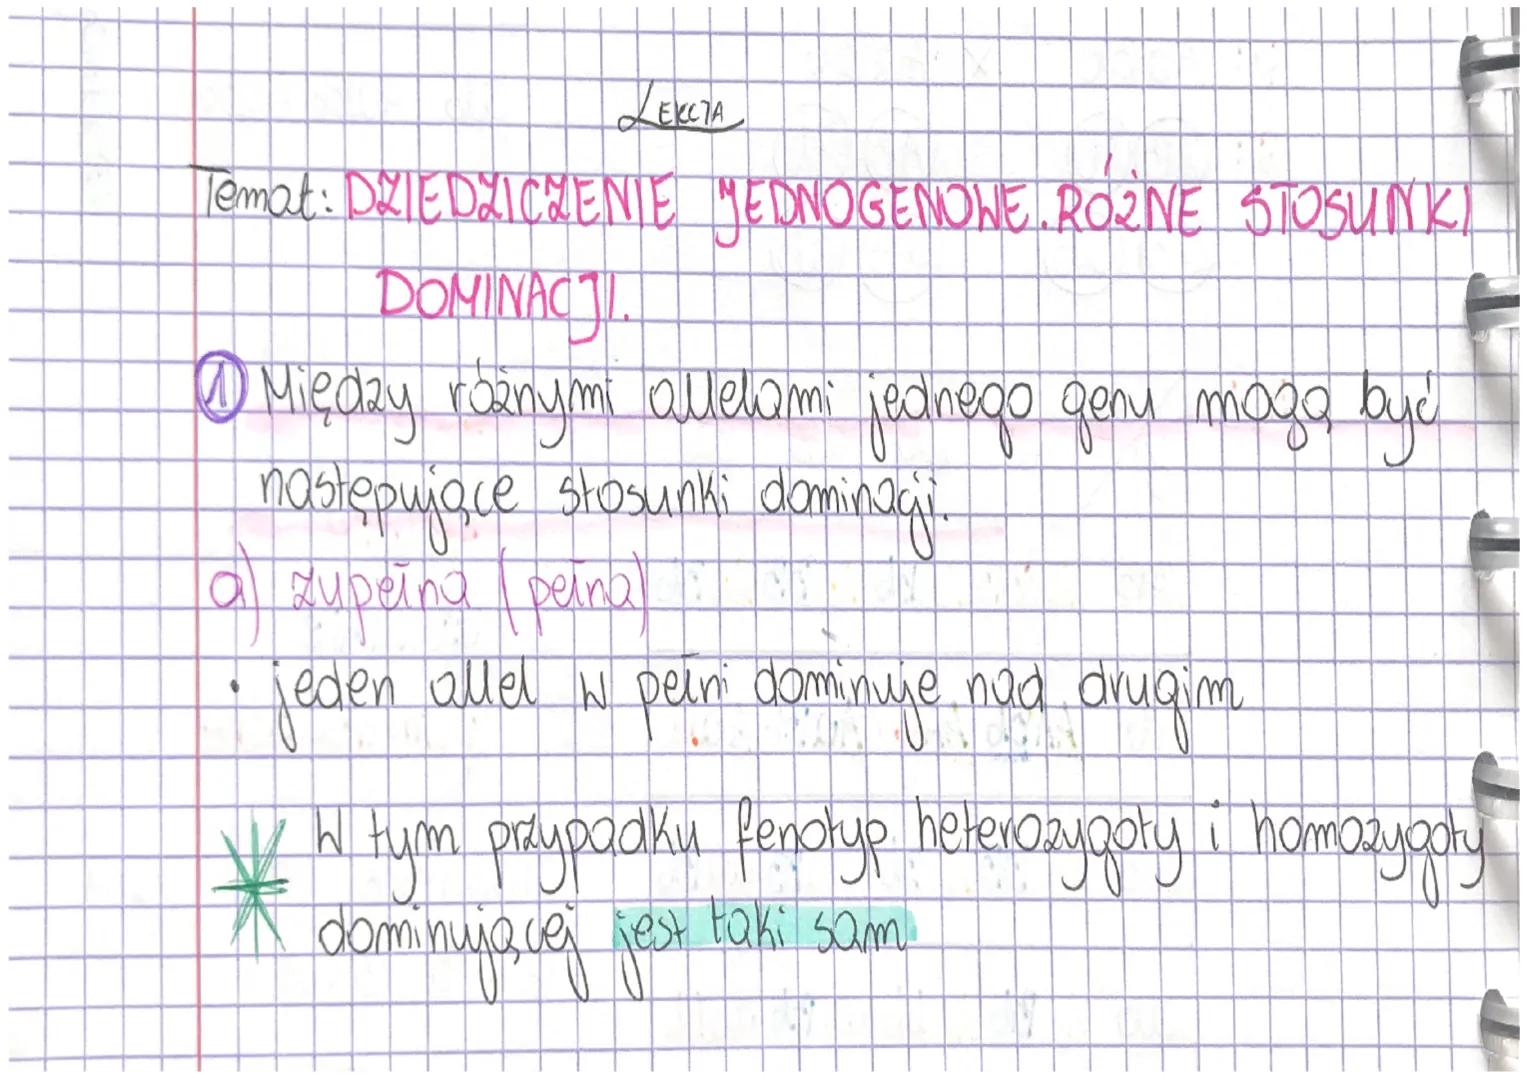 LEKCJA
Temat: DZIEDZICZENIE JEDNOGENOWE. RÓŻNE STOSUNKI
DOMINACJI.
1 Między różnymi allelami jednego genu mogą być
następujące stosunki dominacji.
a) zupełna (pełna)
• jeden allel w pełni dominuje nad drugim
W tym przypadku fenotyp heterozygoty i homozygoty
dominującej jest taki sam